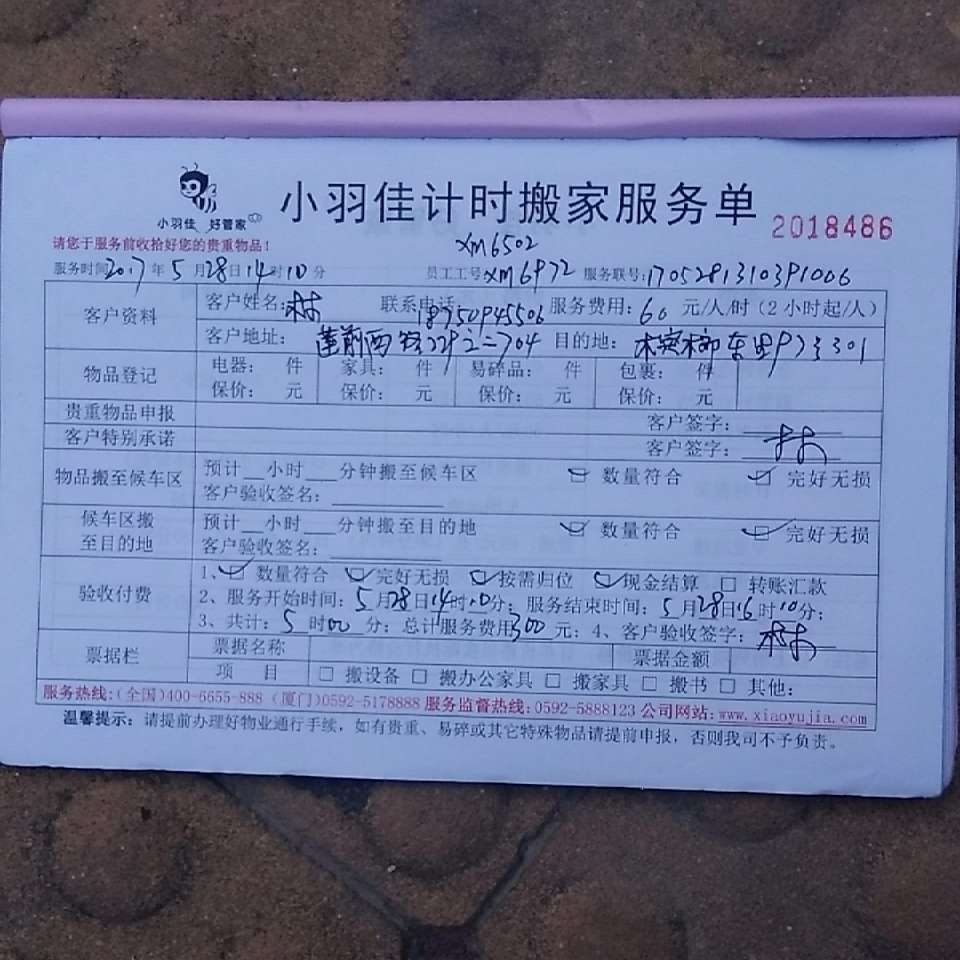 小羽佳计时搬家服务单
小羽佳 好管家
2018486
请您于服务前收拾好您的贵重物品！
xm6502
服务时间2017年5月28日14时10分 员工工号xm6972 服务联号:1705281310391006
客户资料 客户姓名:林 联系电话: 服务费用:60元/人/时(2小时起/人)
客户地址: 莲前西路 目的地:
物品登记 电器: 件 家具: 件 易碎品: 件 包裹: 件
保价: 元 保价: 元 保价: 元 保价: 元
贵重物品申报 客户签字:
客户特别承诺 客户签字: 林
物品搬至候车区 预计__小时___分钟搬至候车区 ☑ 数量符合 ☑ 完好无损
客户验收签名:
候车区搬至目的地 预计__小时___分钟搬至目的地 ☑ 数量符合 ☑ 完好无损
客户验收签名:
验收付费 1、☑ 数量符合 ☑完好无损 ☑按需归位 ☑现金结算 □ 转账汇款
2、服务开始时间:5月28日14时10分; 服务结束时间:5月28日16时10分;
3、共计:5时00分; 总计服务费用300元; 4、客户验收签字: 林
票据栏 票据名称 票据金额
项 目 □ 搬设备 □ 搬办公家具 □ 搬家具 □ 搬书 □ 其他:
服务热线:(全国)400-6655-888 (厦门)0592-5178888 服务监督热线:0592-5888123 公司网站:www.xiaoyujia.com
温馨提示: 请提前办理好物业通行手续，如有贵重、易碎或其它特殊物品请提前申报，否则我司不予负责。